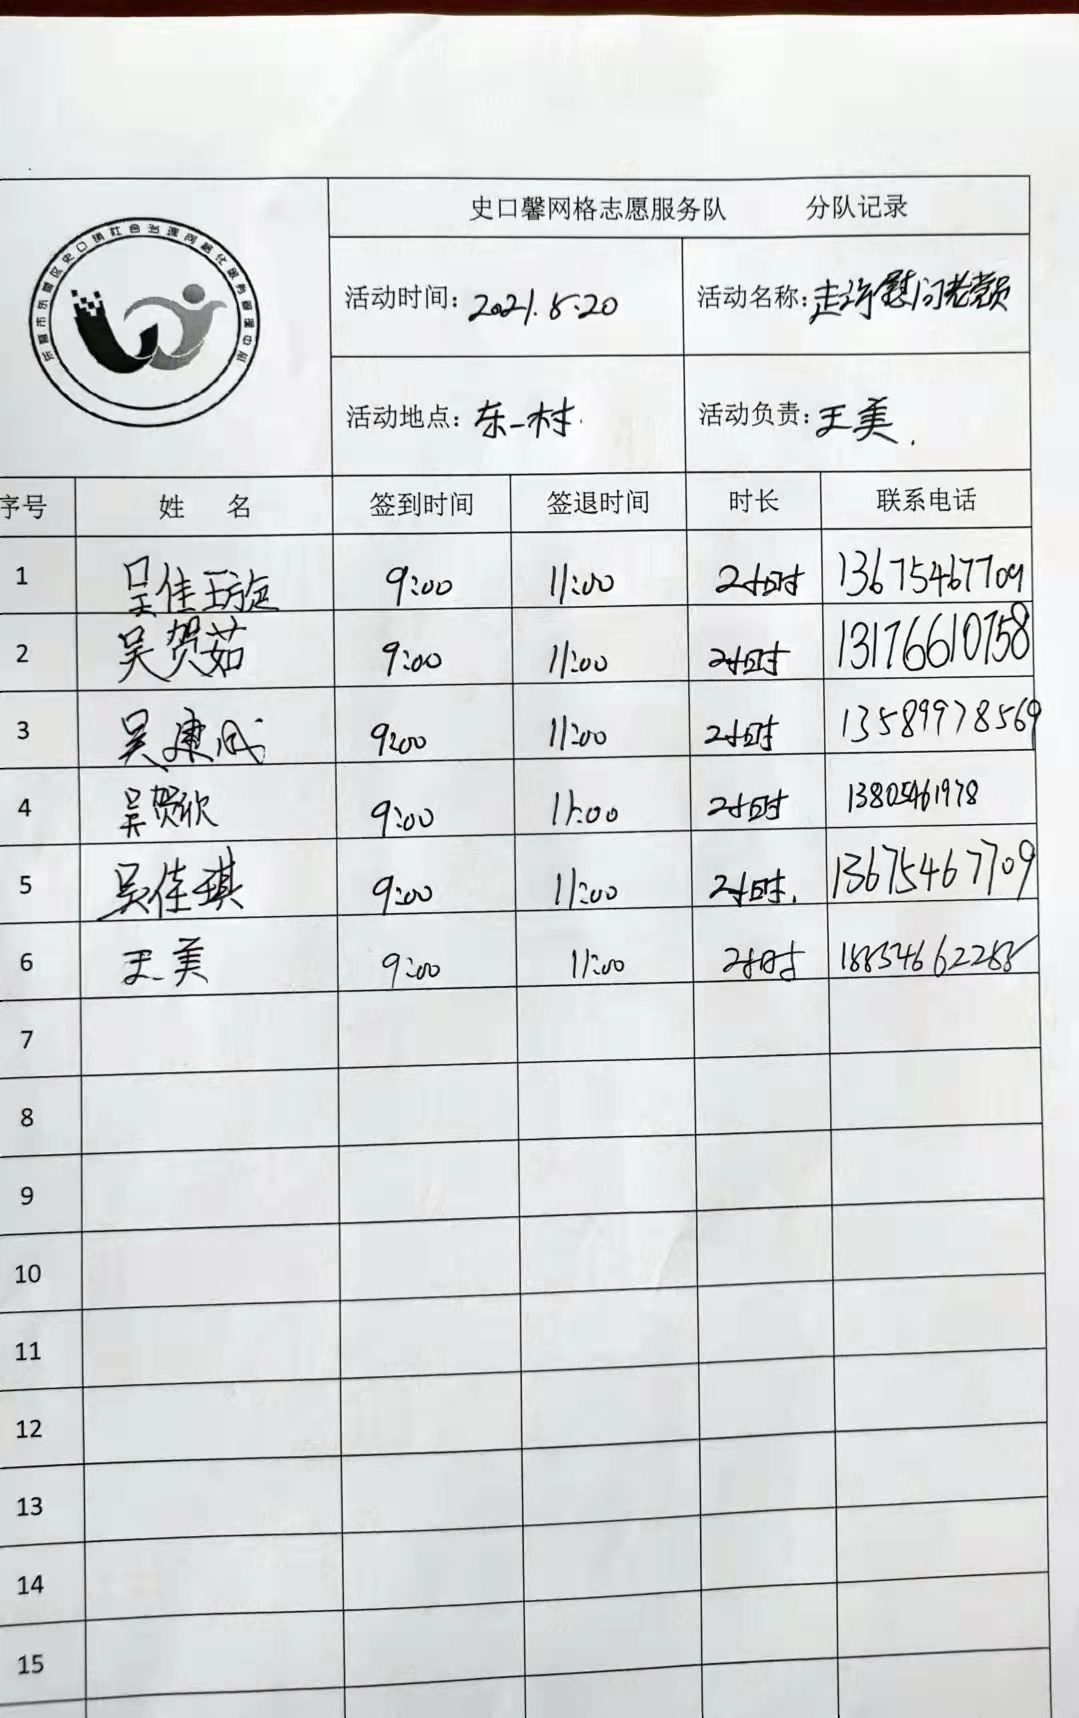 东营市东营区史口镇社会治理网格化服务管理中心
史口馨网格志愿服务队 分队记录
活动时间: 2021.5.20 活动名称: 走访慰问老党员
活动地点: 东一村 活动负责: 王美
序号 姓 名 签到时间 签退时间 时长 联系电话
1 吴佳璇 9:00 11:00 2小时 13675467709
2 吴贺茹 9:00 11:00 2小时 13176610758
3 吴康成 9:00 11:00 2小时 13589978569
4 吴贺欣 9:00 11:00 2小时 13805461978
5 吴佳琪 9:00 11:00 2小时. 13675467709
6 王美 9:00 11:00 2小时
7
8
9
10
11
12
13
14
15